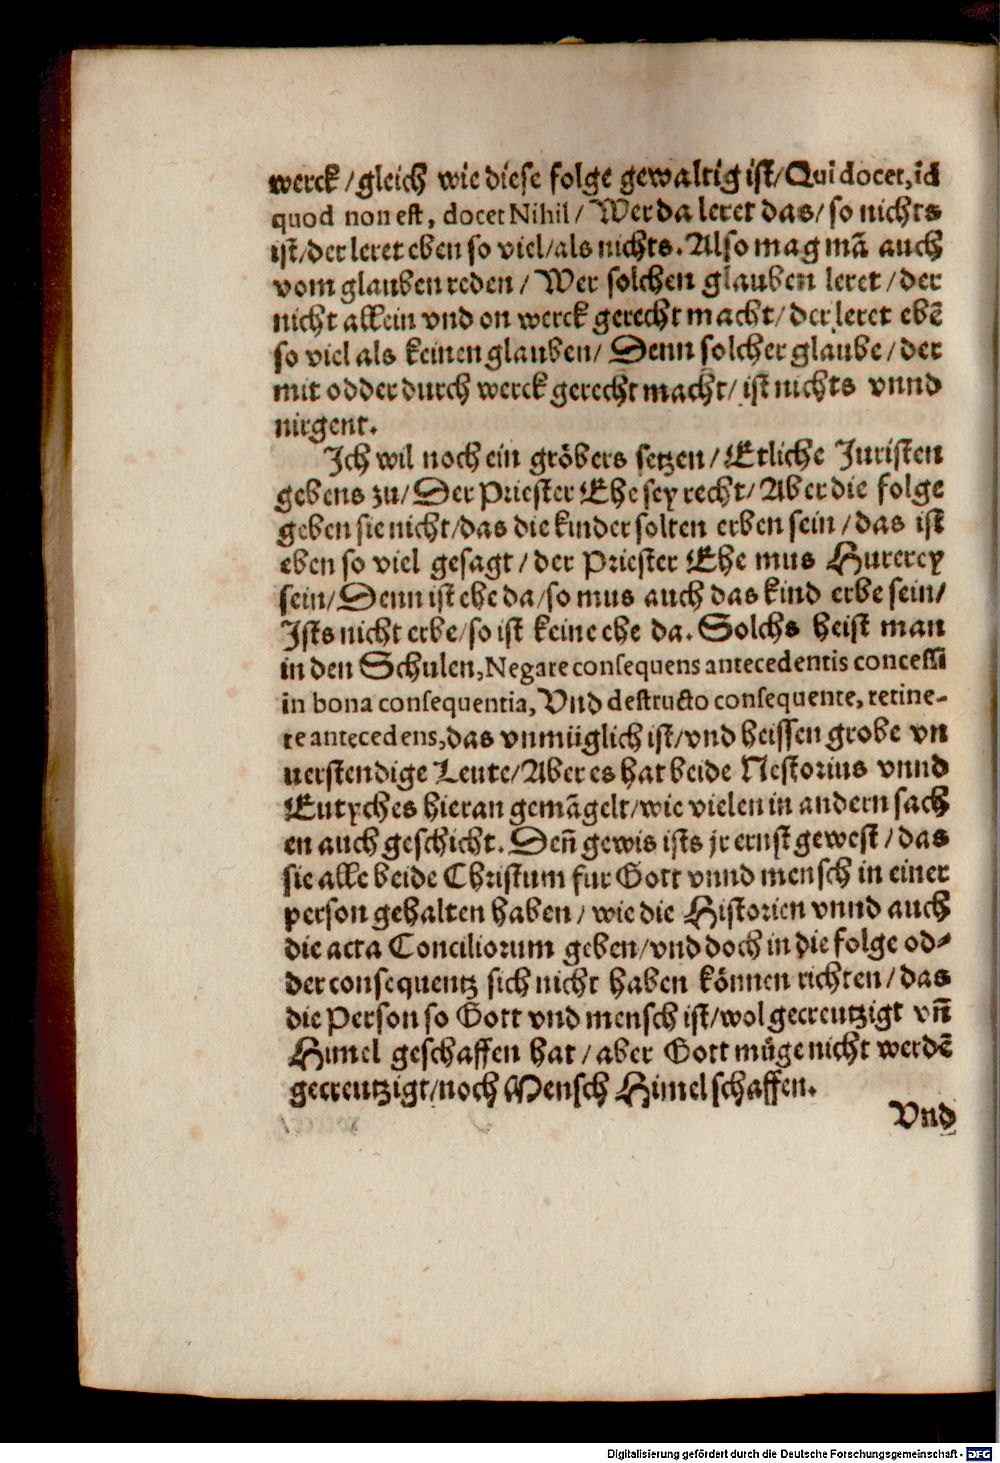 werck / gleich wie diese folge gewaltig ist / Qui docet, id
quod non est, docet Nihil / Wer da leret das / so nichts
ist / der leret eben so viel / als nichts. Also mag mā auch
vom glauben reden / Wer solchen glauben leret / der
nicht allein vnd on werck gerecht macht / der leret ebē
so viel als keinen glauben / Denn solcher glaube / der
mit odder durch werck gerecht macht / ist nichts vnnd
nirgent.
Ich wil noch ein gröbers setzen / Etliche Juristen
gebens zu / Der Priester Ehe sey recht / Aber die folge
geben sie nicht / das die kinder solten erben sein / das ist
eben so viel gesagt / der Priester Ehe mus Hurerey
sein / Denn ist ehe da / so mus auch das kind erbe sein /
Ists nicht erbe / so ist keine ehe da. Solchs heist man
in den Schulen, Negare consequens antecedentis concessi
in bona consequentia, Vnd destructo consequente, retine-
re antecedens, das vnmüglich ist / vnd heissen grobe vn
uerstendige Leute / Aber es hat beide Nestorius vnnd
Eutyches hieran gemāgelt / wie vielen in andern sach
en auch geschicht. Deñ gewis ists jr ernst gewest / das
sie alle beide Christum fur Gott vnnd mensch in einer
person gehalten haben / wie die Historien vnnd auch
die acta Conciliorum geben / vnd doch in die folge od-
der consequentz sich nicht haben können richten / das
die Person so Gott vnd mensch ist / wol gecreutzigt vñ
Himel geschaffen hat / aber Gott müge nicht werdē
gecreutzigt / noch Mensch Himel schaffen.
Vnd
Digitalisierung gefördert durch die Deutsche Forschungsgemeinschaft - DFG